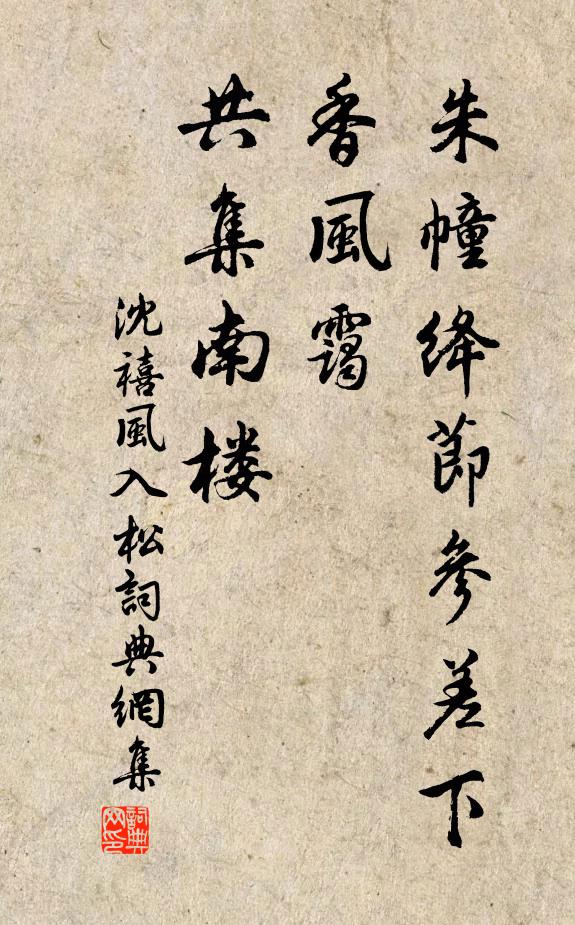 朱幢绛節参差下
香風靄
共集南楼
沈禧風入松詞典網集
詞典网印